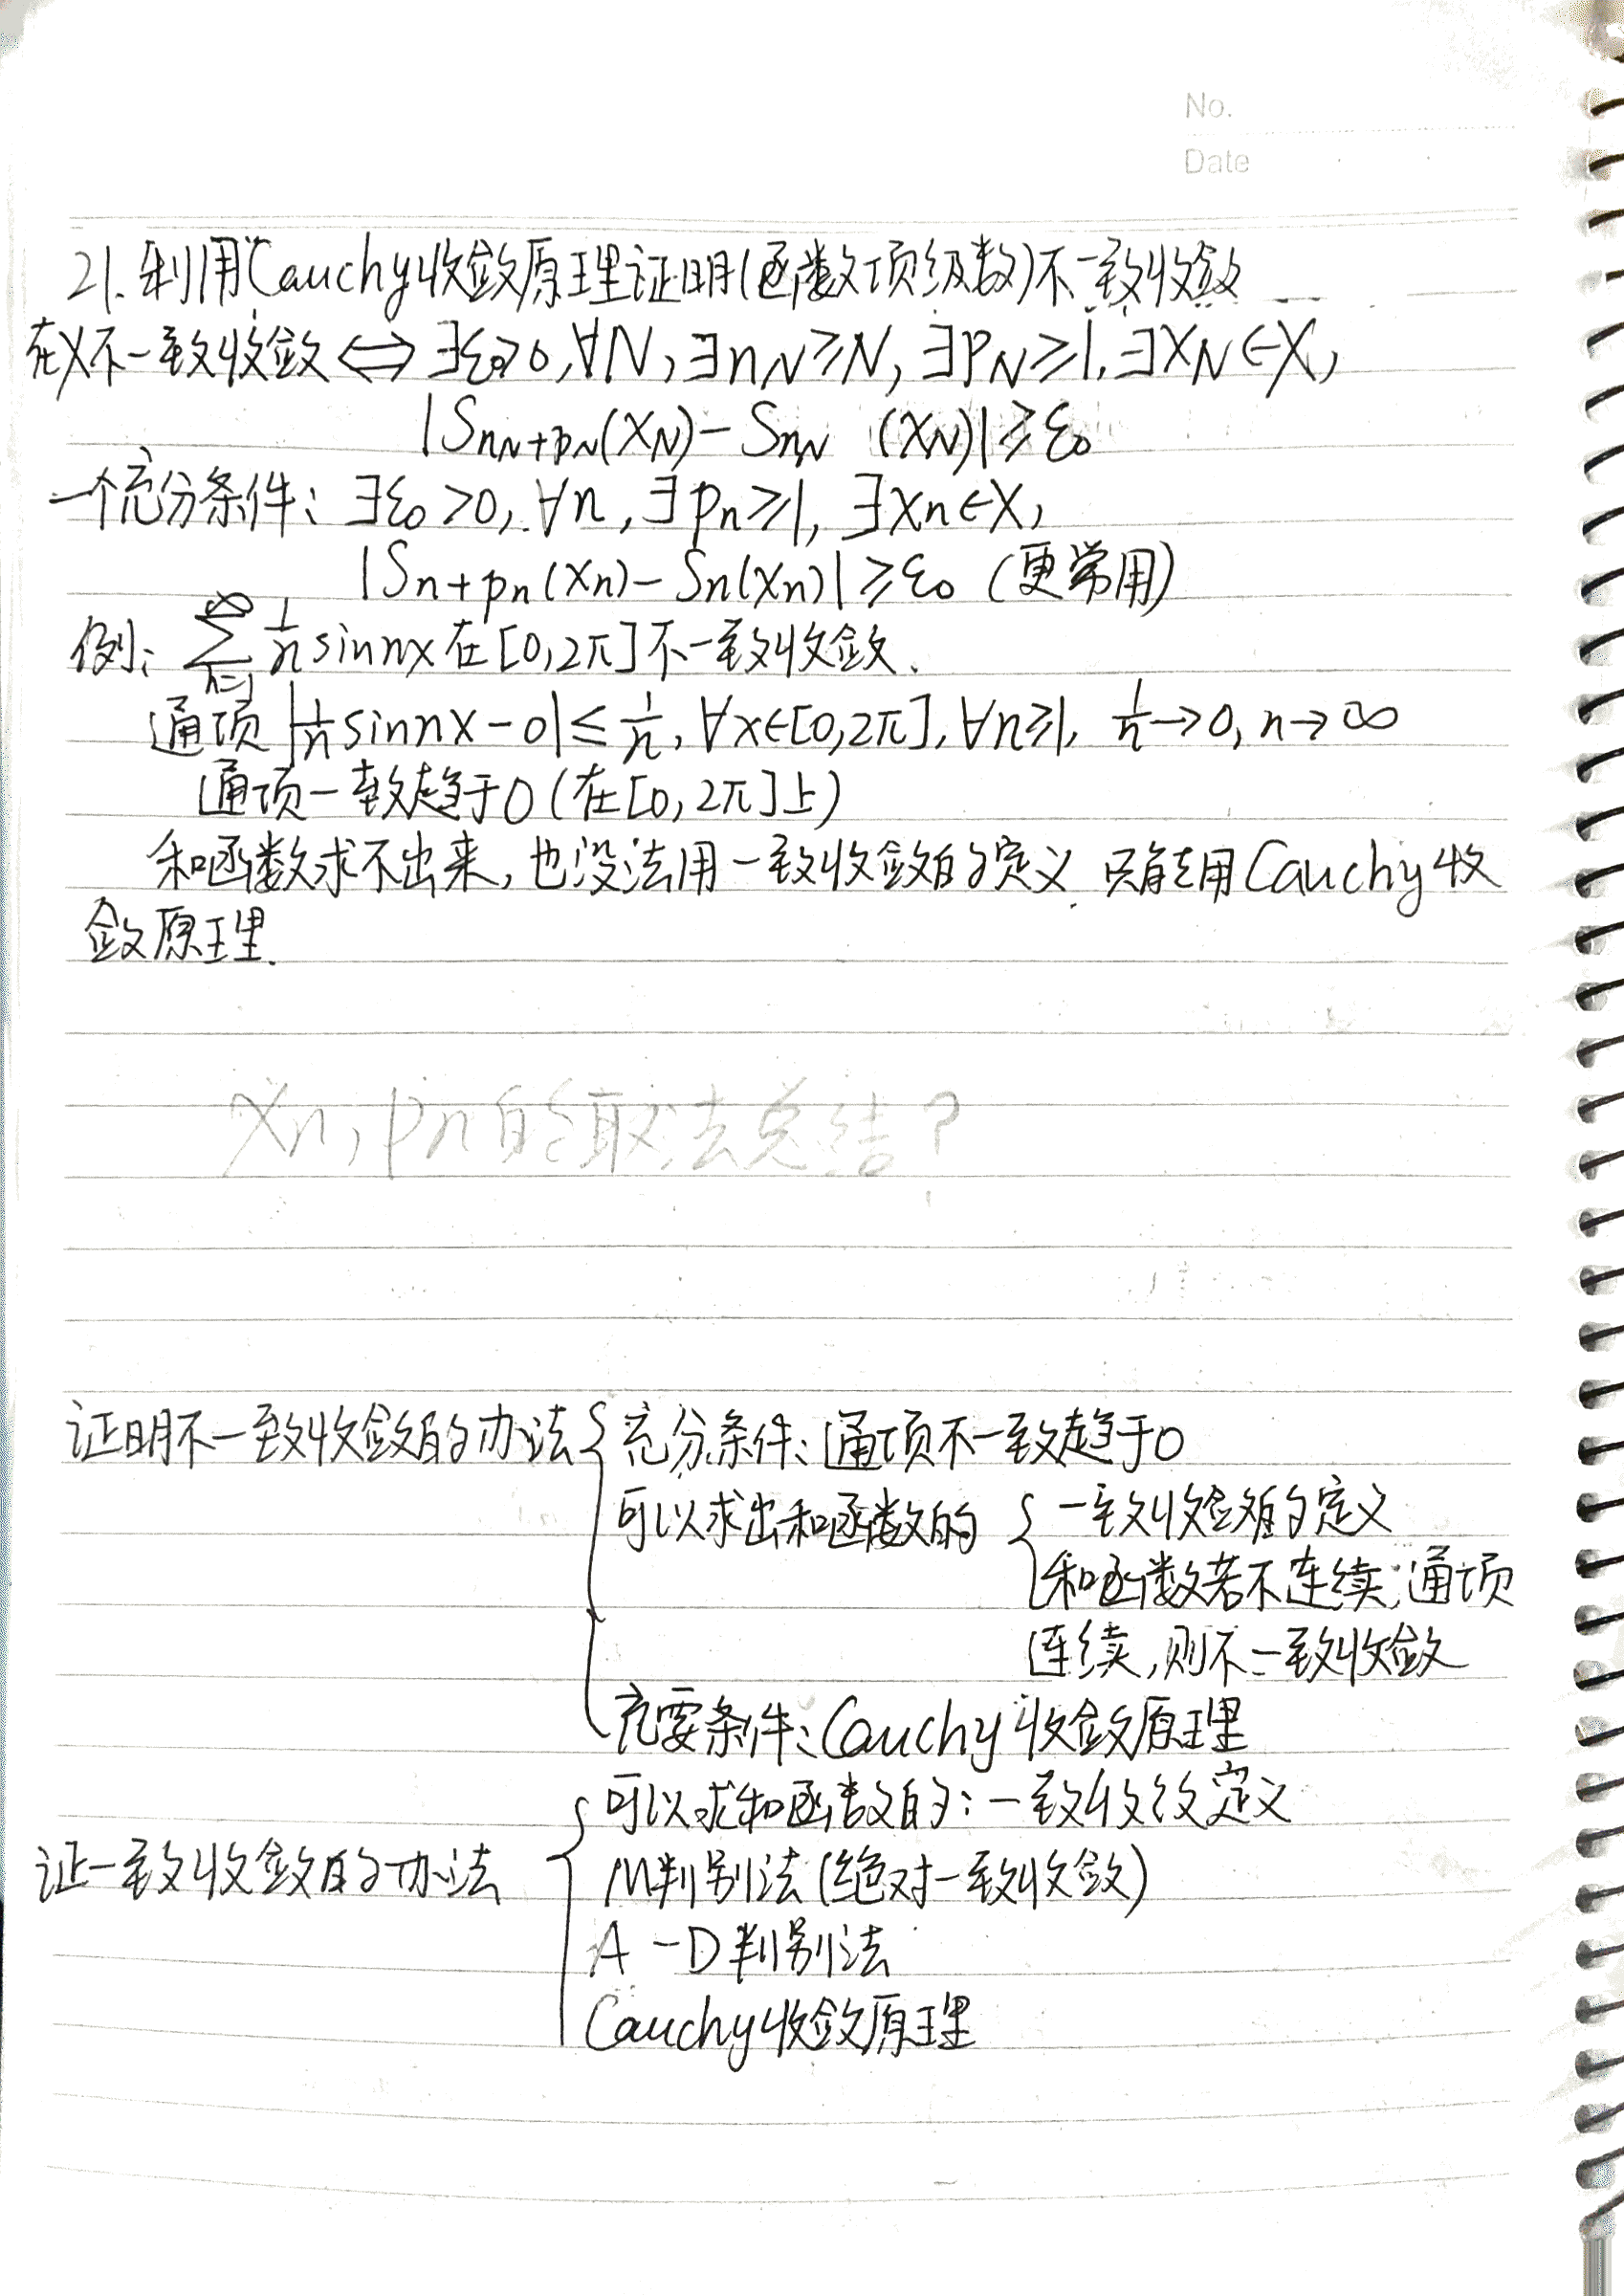 No.
Date
21.利用Cauchy收敛原理证明(函数项级数)不一致收敛
在X不一致收敛⟺∃ε₀>0,∀N,∃n_N≥N,∃p_N≥1,∃x_N∈X,
|S_{n_N+p_N}(x_N)-S_{n_N}(x_N)|≥ε₀
一个充分条件:∃ε₀>0,∀n,∃p_n≥1,∃x_n∈X,
|S_{n+p_n}(x_n)-S_n(x_n)|≥ε₀(更常用)
例:∑_{n=1}^{∞} 1/n sin nx在[0,2π]不一致收敛.
通项|1/n sin nx-0|≤1/n,∀x∈[0,2π],∀n≥1, 1/n→0,n→∞
通项一致趋于0(在[0,2π]上)
和函数求不出来,也没法用一致收敛的定义.只能用Cauchy收
敛原理.
x_n,p_n的取法总结?
证明不一致收敛的办法{充分条件:通项不一致趋于0
可以求出和函数的{一致收敛的定义
和函数若不连续,通项
连续,则不一致收敛
充要条件:Cauchy收敛原理
可以求和函数的:一致收敛定义
证一致收敛的办法{M判别法(绝对一致收敛)
A-D判别法
Cauchy收敛原理